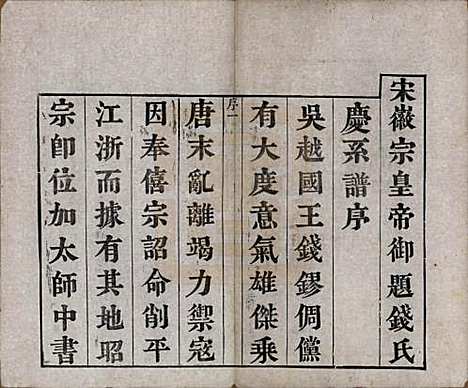 宋徽宗皇帝御題錢氏
慶系譜序
吳越國王錢鏐倜儻
有大度意氣雄傑乘
序一
唐末亂離竭力禦寇
因奉僖宗詔命削平
江浙而據有其地昭
宗卽位加太師中書